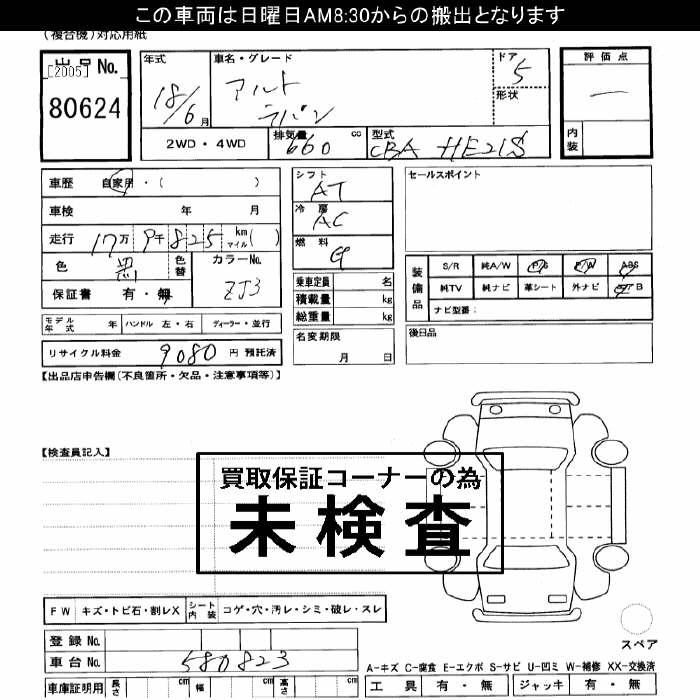 この車両は日曜日AM8:30からの搬出となります
(複合機)対応用紙
出品 No.
[2005]
80624
年式
18/6 月
車名・グレード
アルト
ラパン
ドア
5
形状
評価点
一
内装
2WD・4WD
排気量
660 cc
型式
CBA HE21S
車歴 自家用・( )
車検 年 月
走行 17万 9千 825 km マイル ( )
色 黒 色替
カラーNo.
ZJ3
保証書 有・無
シフト
AT
冷房
AC
燃料
G
乗車定員 名
積載量 kg
総重量 kg
名変期限
月 日
セールスポイント
装備品
S/R 純A/W P/S P/W ABS
純TV 純ナビ 革シート 外ナビ エアB
ナビ型番:
後日品
モデル年式 年 ハンドル 左・右 ディーラー・並行
リサイクル料金 9080 円 預託済
【出品店申告欄(不良箇所・欠品・注意事項等)】
【検査員記入】
買取保証コーナーの為
未検査
FW キズ・トビ石・割レX シート内装 コゲ・穴・汚レ・シミ・破レ・スレ
登録 No.
車台 No. 580823
車庫証明用 長さ cm 幅 cm 高さ cm
スペア
A-キズ C-腐食 E-エクボ S-サビ U-凹ミ W-補修 XX-交換済
工具 有・無 ジャッキ 有・無